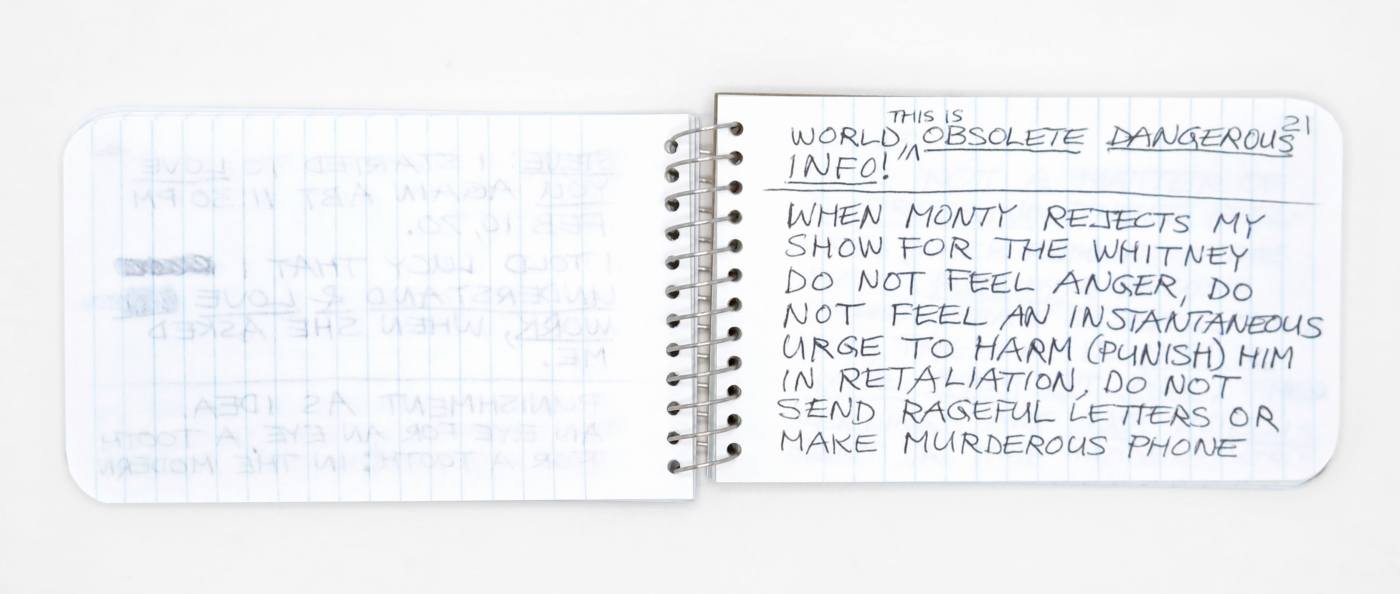 STEVE: I STARTED TO LOVE
YOU AGAIN ABT 11:30 PM
FEB 10, 70.
I TOLD LUCY THAT I
UNDERSTAND & LOVE
WORK, WHEN SHE ASKED
ME.
PUNISHMENT AS IDEA,
AN EYE FOR AN EYE, A TOOTH
FOR A TOOTH: IN THE MODERN
21
THIS IS
WORLD, OBSOLETE DANGEROUS
INFO!
WHEN MONTY REJECTS MY
SHOW FOR THE WHITNEY
DO NOT FEEL ANGER, DO
NOT FEEL AN INSTANTANEOUS
URGE TO HARM (PUNISH) HIM
IN RETALIATION, DO NOT
SEND RAGEFUL LETTERS OR
MAKE MURDEROUS PHONE